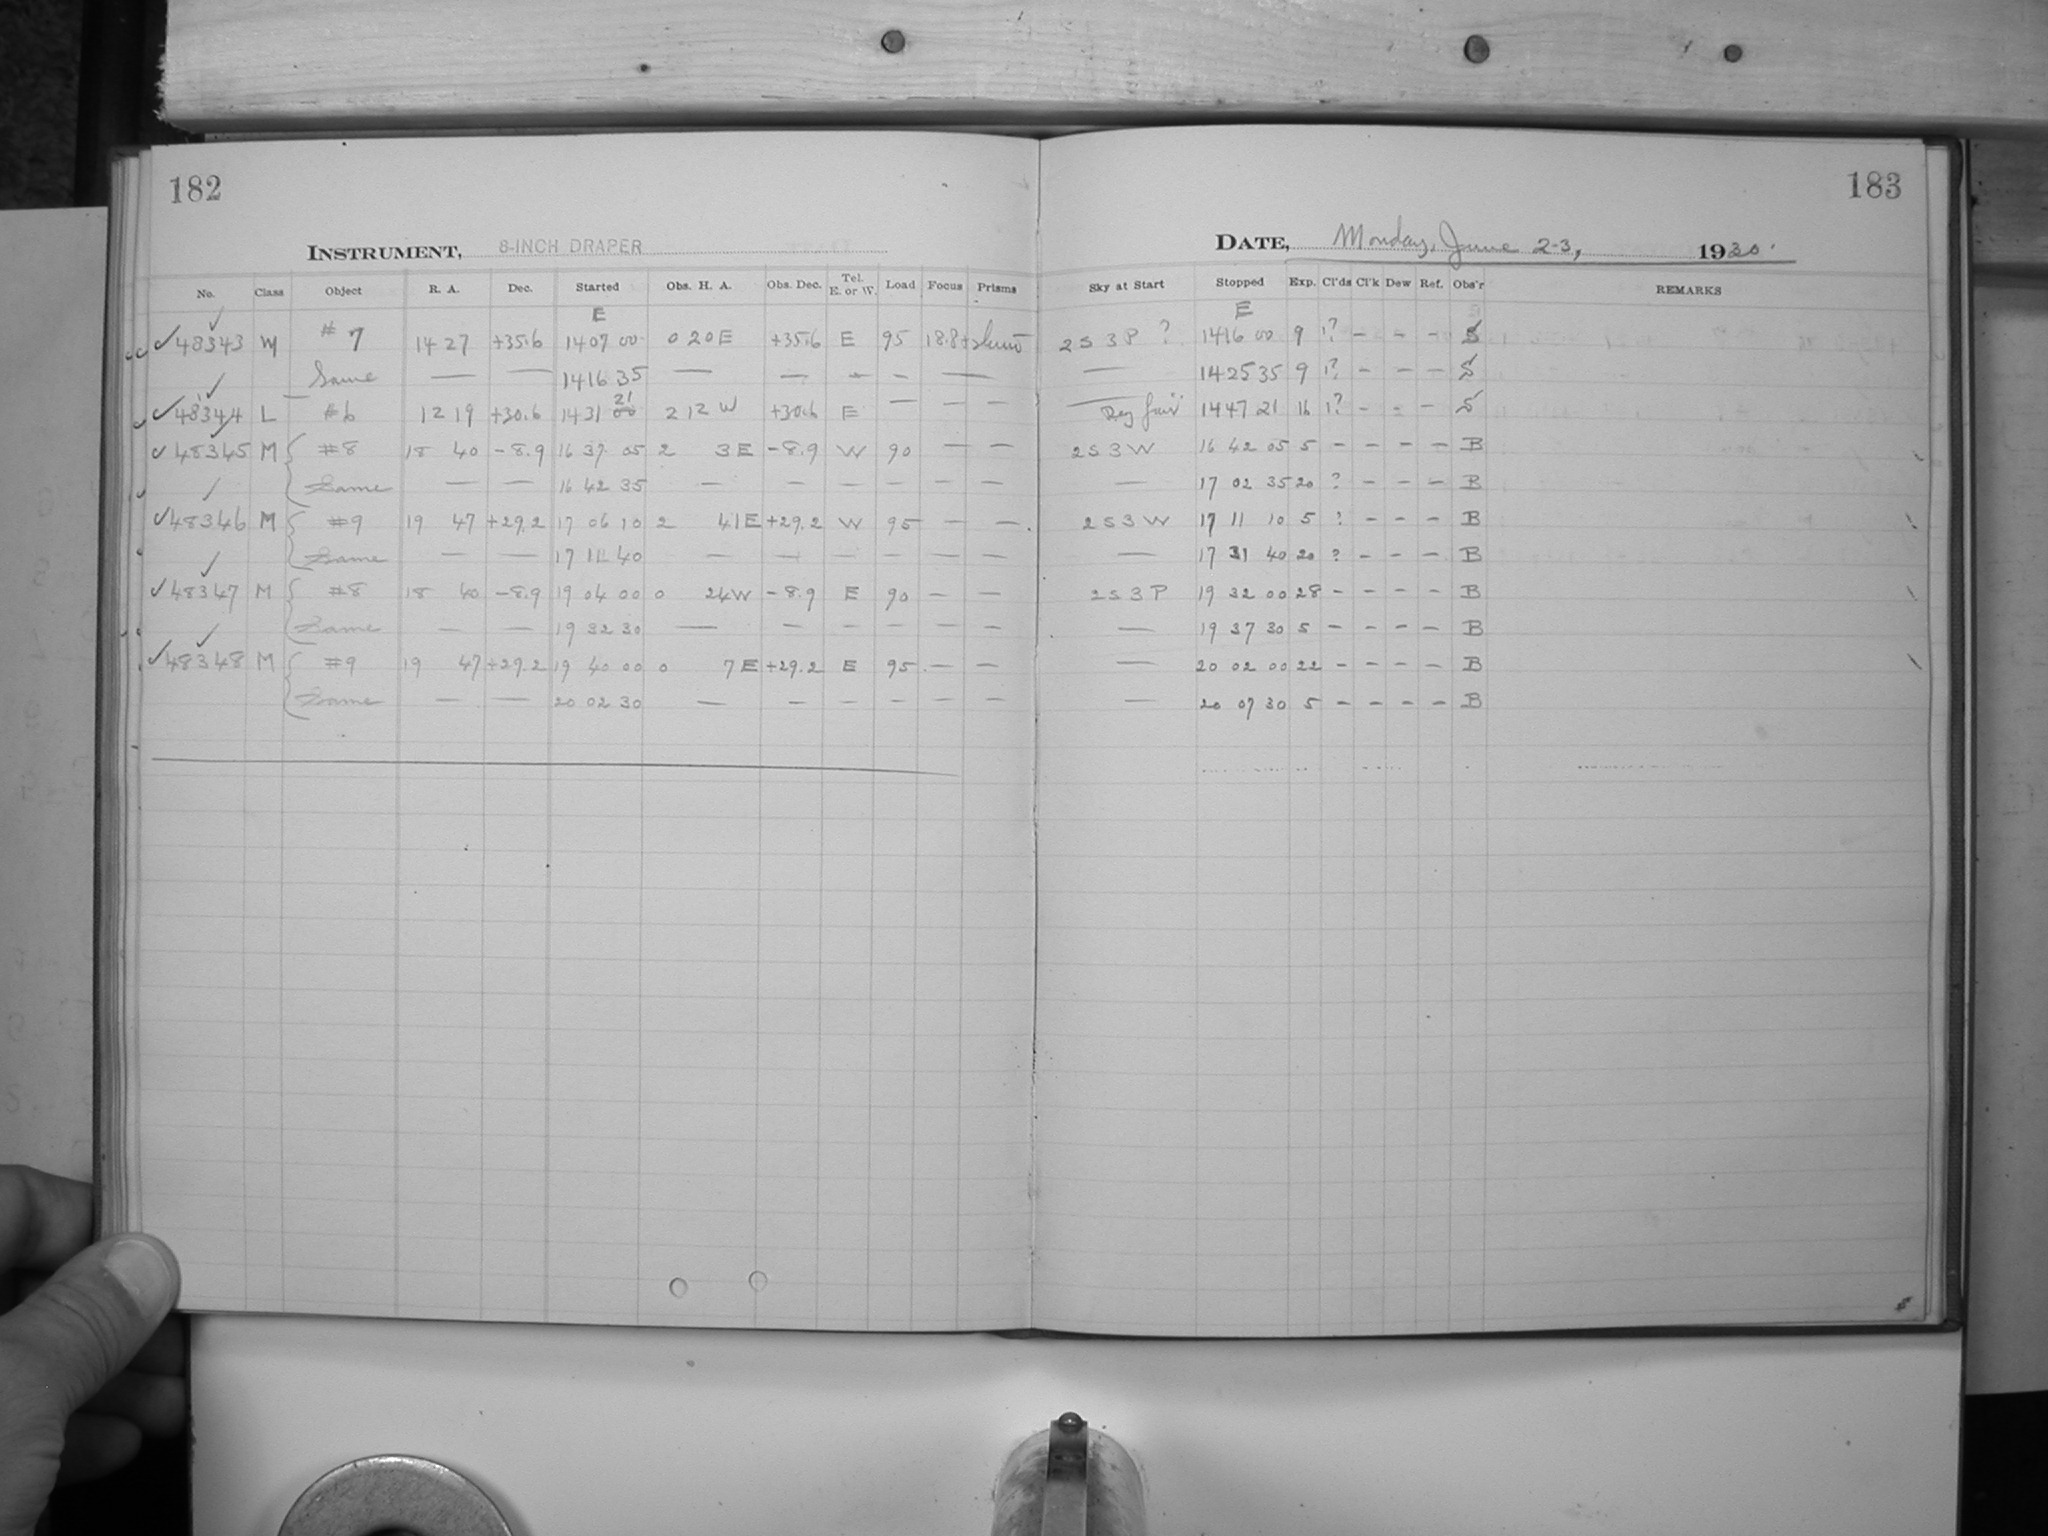 182
183
INSTRUMENT, 8-INCH DRAPER
DATE, Monday, June 2-3, 1930.
No. Class Object R. A. Dec. Started Obs. H. A. Obs. Dec. Tel. E. or W. Load Focus Prisms Sky at Start Stopped Exp. Cl'ds Cl'k Dew Ref. Obs'r REMARKS
E E
✓48343 M #7 14 27 +35.6 14 07 00 0 20 E +35.6 E 95 18.8 2 S 3 P ? 14 16 00 9 1? – – – S
Same — — 14 16 35 — — – – — — 14 25 35 9 1? – – – S
✓48344 L #6 12 19 +30.6 14 31 21 00 2 12 W +30.6 E — — — fair 14 47 21 16 1? – – – S
✓48345 M #8 18 40 -8.9 16 37 05 2 3 E -8.9 W 90 — — 2 S 3 W 16 42 05 5 – – – – B
Same — — 16 42 35 — — — — — — — 17 02 35 20 ? – – – B
✓48346 M #9 19 47 +29.2 17 06 10 2 41 E +29.2 W 95 — — 2 S 3 W 17 11 10 5 ? – – – B
Same — — 17 11 40 — — — — — — — 17 31 40 20 ? – – – B
✓48347 M #8 18 40 -8.9 19 04 00 0 24 W -8.9 E 90 — — 2 S 3 P 19 32 00 28 – – – – B
Same — — 19 32 30 — — — — — — — 19 37 30 5 – – – – B
✓48348 M #9 19 47 +29.2 19 40 00 0 7 E +29.2 E 95 — — — 20 02 00 22 – – – – B
Same — — 20 02 30 — — — — — — — 20 07 30 5 – – – – B